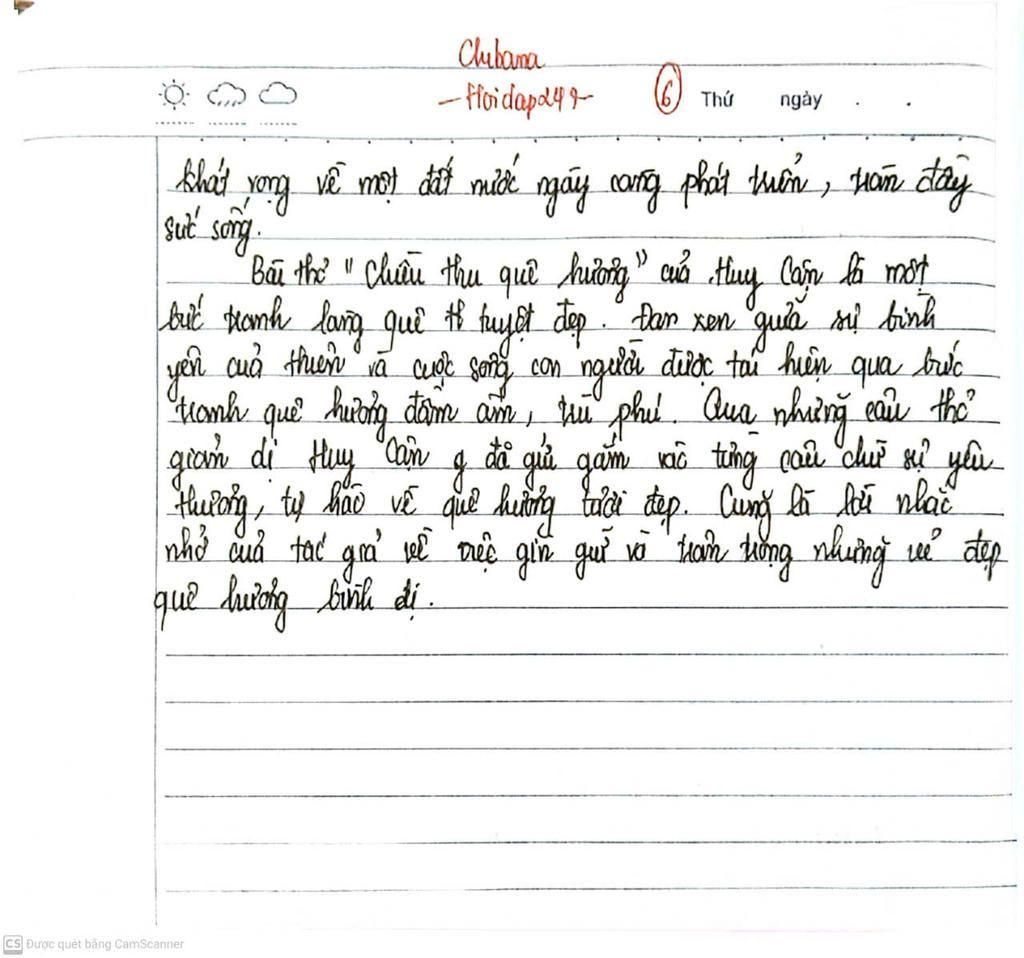 Chibana
- Hoidap249 -
6 Thứ ngày . .
khát vọng về một đất nước ngày càng phát triển, tràn đầy
sức sống.
Bài thơ "Chiều thu quê hương" của Huy Cận là một
bức tranh làng quê tuyệt đẹp. Đan xen giữa sự bình
yên của thiên và cuộc sống con người được tái hiện qua bức
tranh quê hương đầm ấm, trù phú. Qua những câu thơ
giản dị Huy Cận đã gửi gắm vào từng câu chữ sự yêu
thương, tự hào về quê hương tươi đẹp. Cũng là lời nhắc
nhở của tác giả về việc gìn giữ và trân trọng những vẻ đẹp
quê hương bình dị.
CS Được quét bằng CamScanner